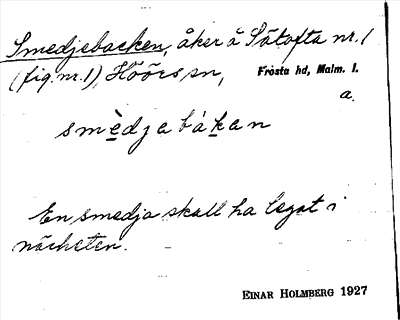 Smedjebacken, åker å Sätofta nr. 1
(fig. nr. 1), Höörs sn, Frosta hd, Malm. l.
a.
smèdjabákan
En smedja skall ha legat i
närheten.
EINAR HOLMBERG 1927